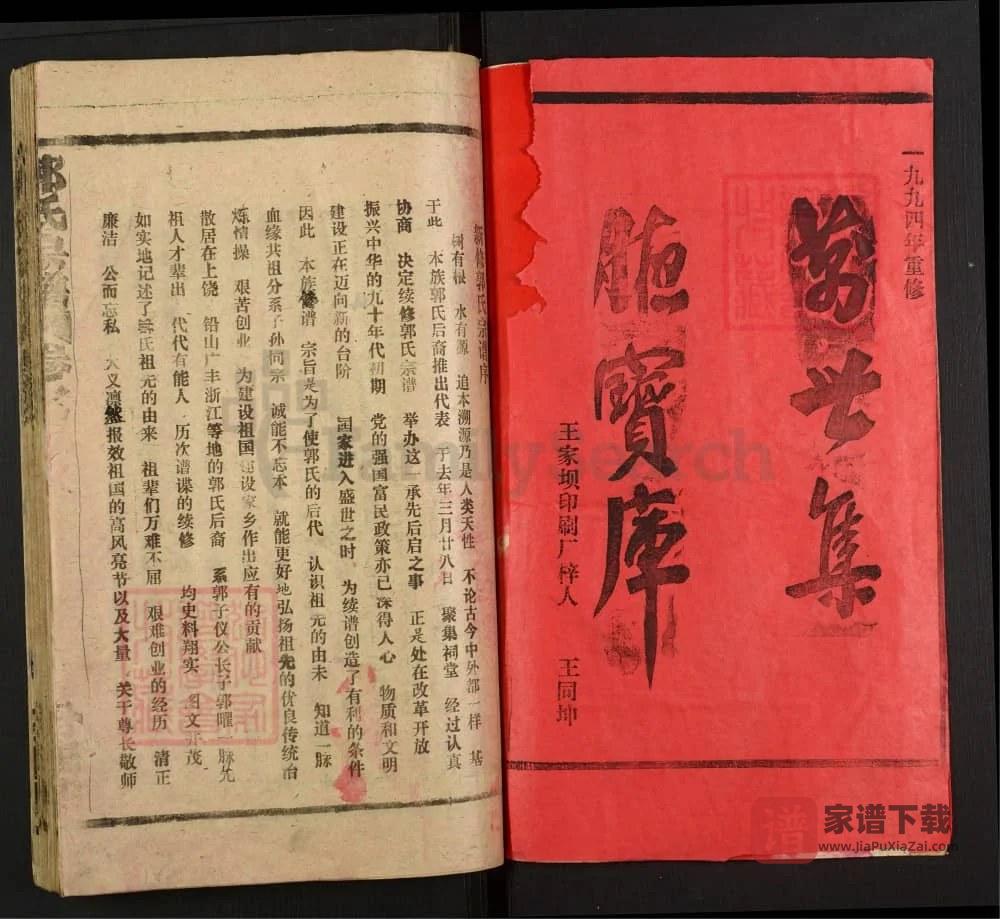 一九九四年重修
万世集
胜宝库
王家坝印刷厂梓人 王同坤
新修郭氏宗谱序
树有根 水有源 追本溯源乃是人类天性 不论古今中外都一样 基
于此 本族郭氏后裔推出代表 于去年三月廿八日 聚集祠堂 经过认真
协商 决定续修郭氏宗谱 举办这一承先后启之事 正是处在改革开放
振兴中华的九十年代初期 党的强国富民政策亦已深得人心 物质和文明
建设正在迈向新的台阶 国家进入盛世之时 为续谱创造了有利的条件
因此 本族修谱 宗旨是为了使郭氏的后代 认识祖元的由未 知道一脉
血缘共祖分系子孙同宗 诚能不忘本 就能更好地弘扬祖先的优良传统冶
炼情操 艰苦创业 为建设祖国建设家乡作出应有的贡献
散居在上饶 铅山广丰浙江等地的郭氏后裔 系郭子仪公长子郭曜一脉先
祖人才辈出 代代有能人 历次谱谍的续修 均史料翔实 图文并茂
如实地记述了郭氏祖元的由来 祖辈们万难不屈 艰难创业的经历 清正
廉洁 公而忘私 大义凛然报效祖国的高风亮节以及大量 关于尊长敬师
familysearch
谱
家谱下载
www.JiaPuXiaZai.com